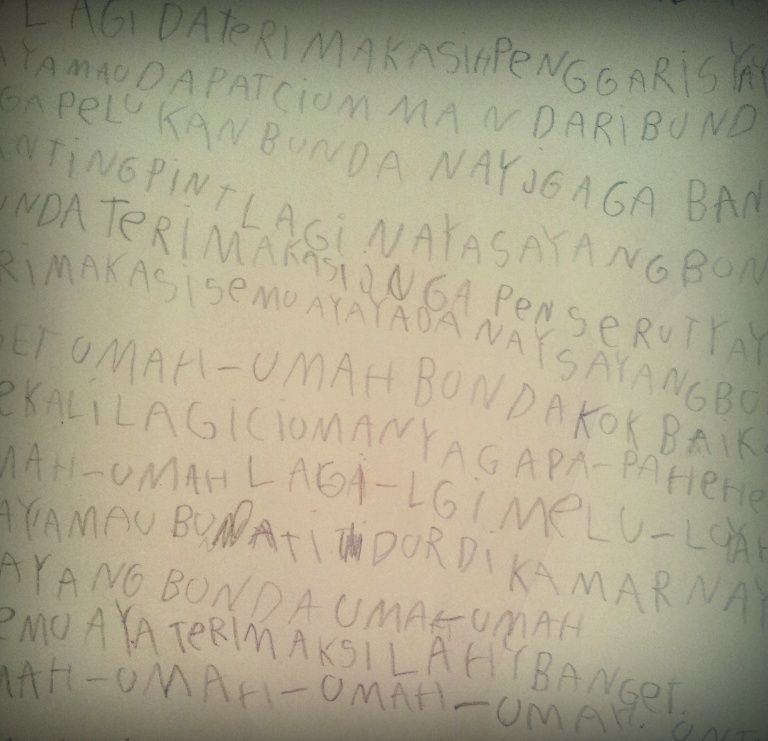 LAGI DATERIMAKASIHPENGGARISYAY
AYAMAUDAPATCIUMMAN DARIBUND
GAPELUKANBUNDA NAYJGAGA BAN
ANTINGPINTLAGI NAYASAYANGBUN
UNDATERIMAKASIJNGAPENSERUTYAY
RIMAKASISEMUAYAYADANAYSAYANGBU
GET UMAH-UMAH BUNDAKOKBAIK
EKALILAGICIUMANYAGAPA-PAHEHE
MAH-UMAH LAGI-LGIMELU-LUYAH
AYAMAU BUNATI TIDURDIKAMARNAY
AYANGBUNDAUMAH-UMAH
EMUAYATERIMAKSILAHYBANGET.
MAH-UMAH-UMAH-UMAH.